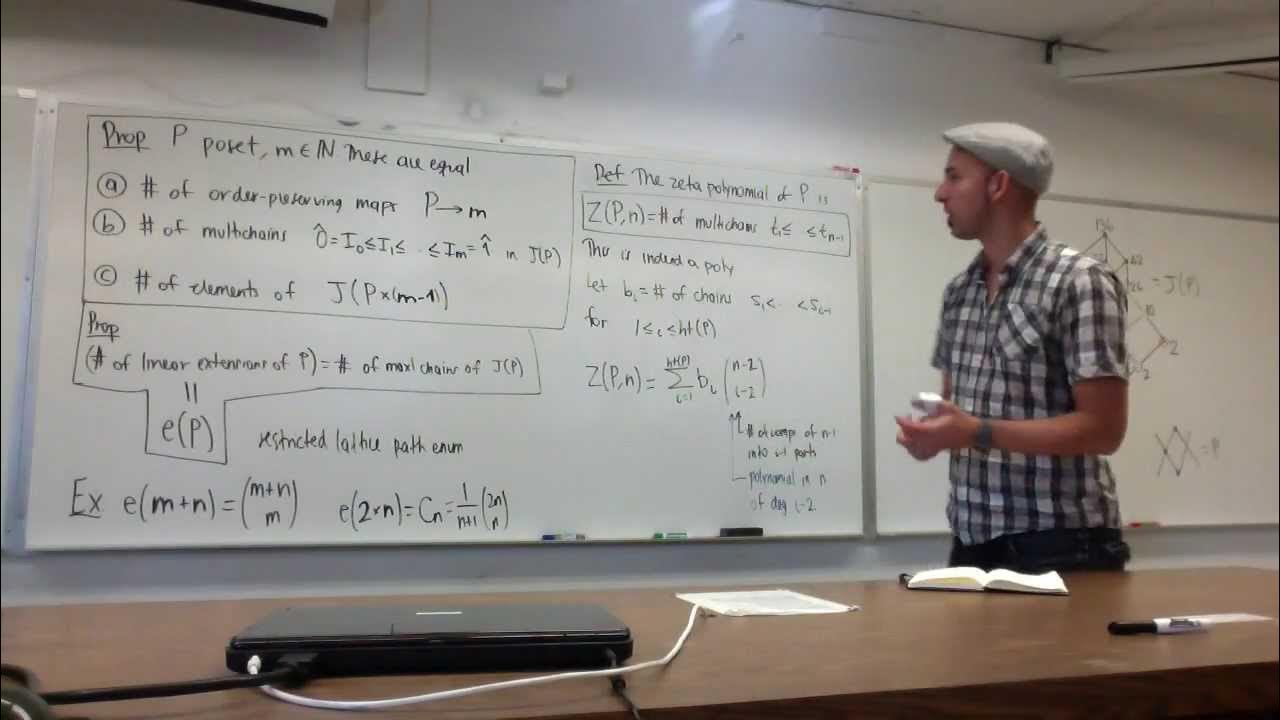 Prop P poset, m ∈ ℕ These are equal
ⓐ # of order-preserving maps P → m
ⓑ # of multichains 0̂ = I₀ ≤ I₁ ≤ .. ≤ Iₘ = 1̂ in J(P)
ⓒ # of elements of J(P×(m-1))
Prop
(# of linear extensions of P) = # of maxl chains of J(P)
||
e(P)
restricted lattice path enum
Ex e(m+n) = (m+n m) e(2×n) = Cₙ = 1/(n+1) (2n n)
Def The zeta polynomial of P is
Z(P,n) = # of multichains t₁ ≤ ≤ tₙ₋₁
This is indeed a poly
Let bᵢ = # of chains s₁ < .. < sᵢ₋₁
for 1 ≤ i ≤ ht(P)
Z(P,n) = ∑ ht(P) i=1 bᵢ (n-2 i-2)
# of comps of n-1
into i-1 parts
polynomial in n
of deg i-2
42
26 = J(P)
10
2
2
= P